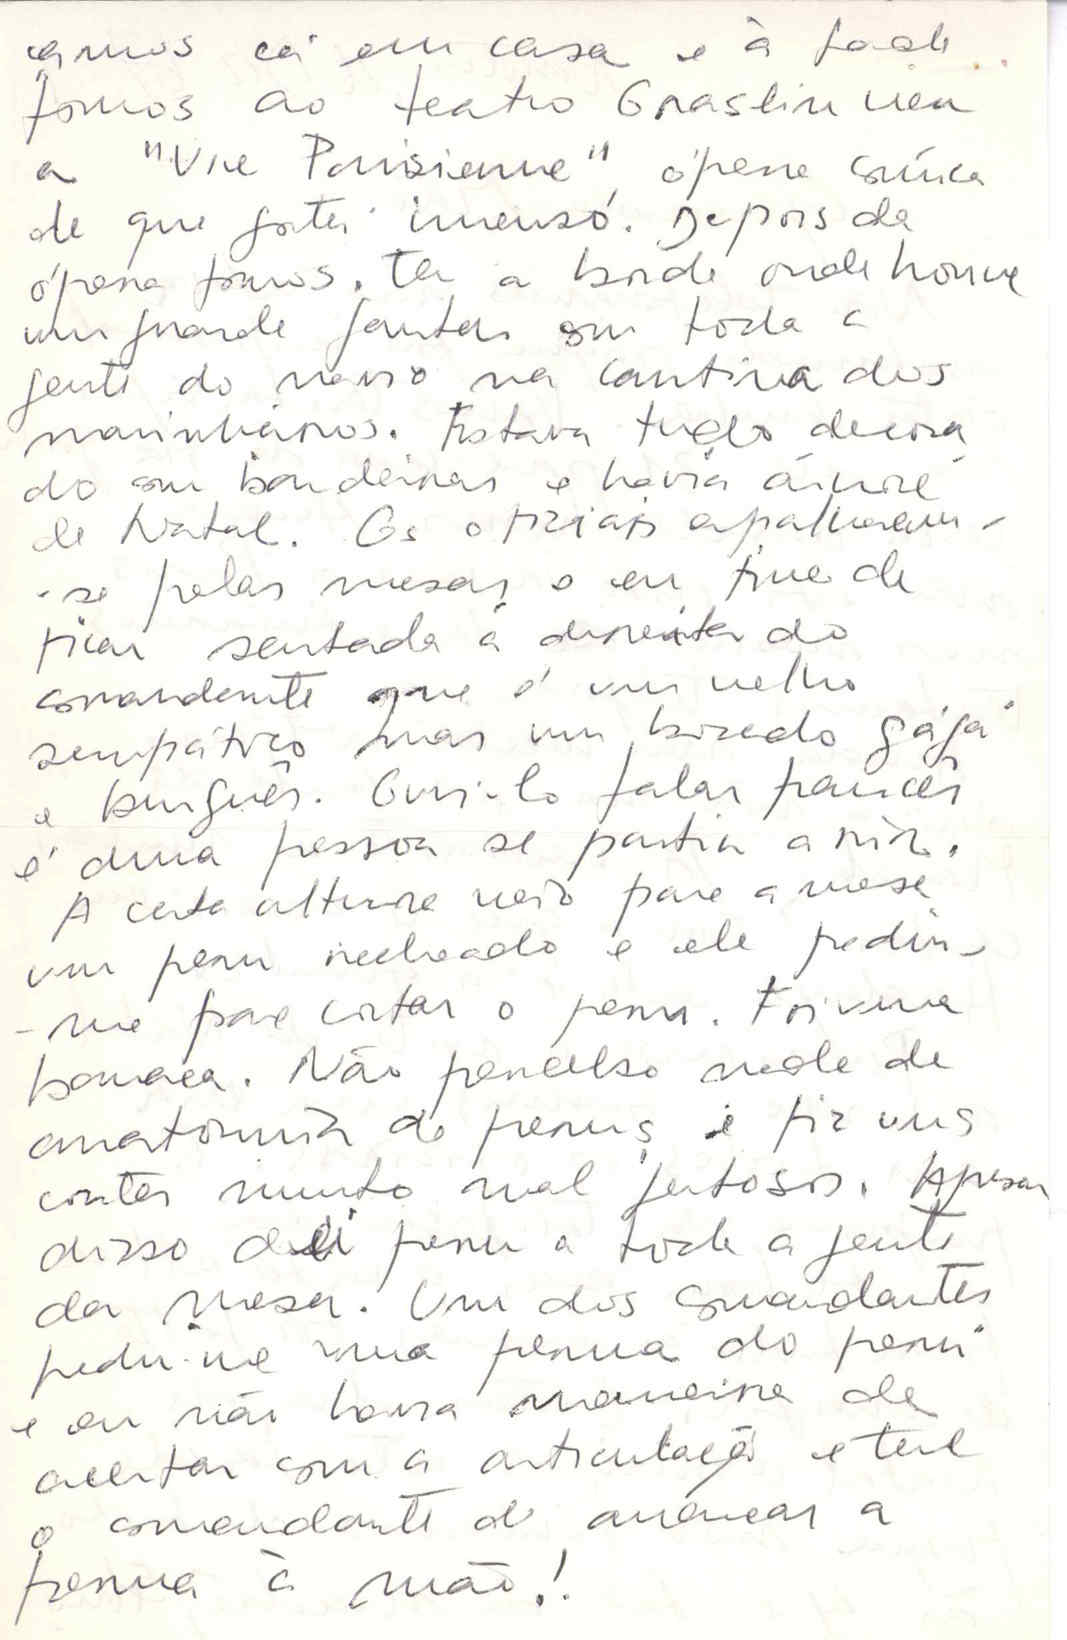 çamos cá em casa e à tarde
fomos ao teatro Graslin ver
a "Vie Parisienne", ópera cómica
de que gostei imenso. Depois da
ópera fomos ter a bordo onde houve
um grande jantar com toda a
gente do navio na cantina dos
marinheiros. Estava tudo decora
do com bandeiras e havia árvore
de Natal. Os oficiais espalharam-
-se pelas mesas e eu tive de
ficar sentada à direita do
comandante que é um velho
simpático mas um bocado gágá
e burguês. Ouvi-lo falar francês
é duma pessoa se partir a rir.
A certa altura veio para a mesa
um peru recheado e ele pediu-
-me para cortar o peru. Foi uma
bronca. Não percebo nada de
anatomia de perus e fiz uns
cortes muito mal jeitosos. Apesar
disso dei peru a toda a gente
da mesa. Um dos comandantes
pediu-me uma perna do peru
e eu não havia maneira de
acertar com a articulação e teve
o comandante de arrancar a
perna à mão!